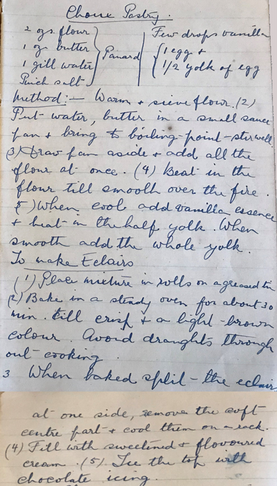 Choux Pastry.
2 ozs. flour
1 oz. butter
1 gill water
Pinch salt
Panard
Few drops vanilla
1 egg +
1/2 yolk of egg
Method:- Warm + sieve flour. (2)
Put water, butter in a small sauce
pan + bring to boiling point-stir well
(3) Draw pan aside + add all the
flour at once. (4) Beat in the
flour till smooth over the fire
5) When cool add vanilla essence
+ beat in the half yolk. When
smooth add the whole yolk.
To make Eclairs
(1) Place mixture in rolls on a greased tin
(2) Bake in a steady oven for about 30
min. till crisp + a light-brown
colour. Avoid draughts through
out cooking
3 When baked split the eclair
at one side, remove the soft
centre part + cool them on a rack.
(4) Fill with sweetened + flavoured
cream. (5) Ice the top with
chocolate icing.